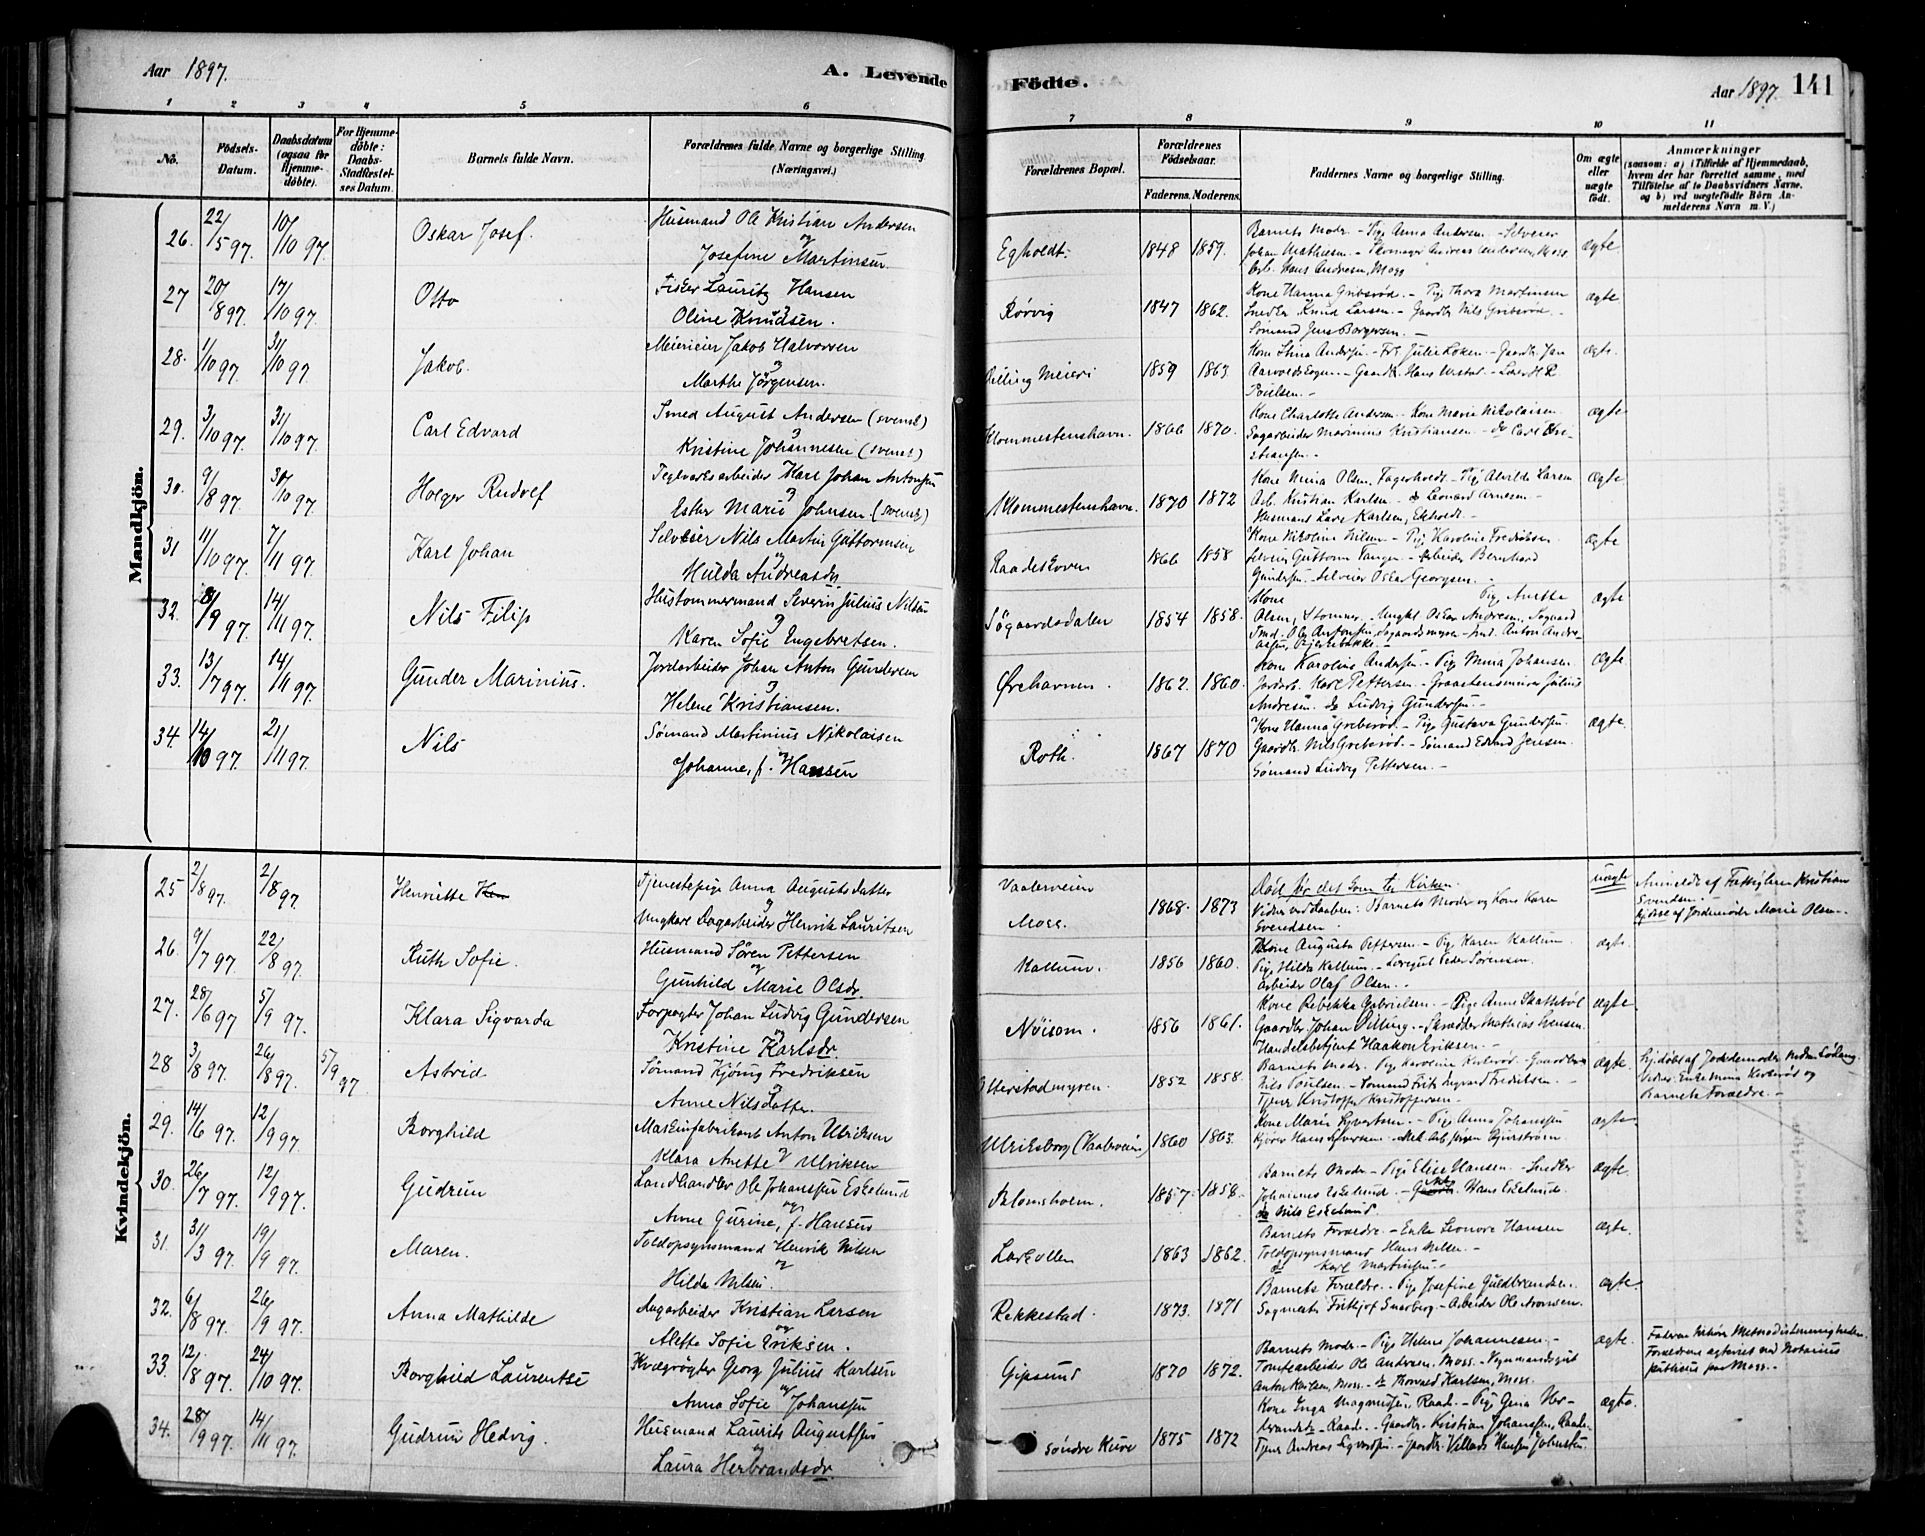 Aar 1897.
A. Levende
Fødte.
Aar 1897. 141
1 2 3 4 5 6 7 8 9 10 11
No.
Födsels-Datum.
Daabsdatum (ogsaa for Hjemme-döbte).
For Hjemme-döbte: Daabs-Stadfæstel-ses Datum.
Barnets fulde Navn.
Forældrenes fulde Navne og borgerlige Stilling. (Næringsvei.)
Forældrenes Bopæl.
Forældrenes Födselsaar.
Faderens. Moderens.
Faddernes Navne og borgerlige Stilling.
Om ægte eller uægte födt.
Anmærkninger
(saasom: a) i Tilfælde af Hjemmedaab,
hvem der har forrettet samme, med
Tilføielse af to Daabsvidners Navne,
og b) ved uægtefödte Börn An-
melderens Navn m. V.)
Mandkjön.
26. 22/5 97. 10/10 97. Oskar Josef. Husmand Ole Kristian Andersen og Josefine Martinsen Egholdt. 1848 1859. Barnets Moder. - Pige Anna Andersen - Selveier
Johan Mathiesen - Skomager Andreas Andersen, Moss
Arb. Hans Andresen, Moss ægte
27 20/8 97. 17/10 97. Otto Fisker Lauritz Hansen og Oline Knudsen. Rörvig 1847 1862. Kone Hanna Gribsröd. - Pige Thora Martinsen
Snedker Knud Larsen - Gaardbr Nils Gribsröd -
Sömand Jens Borgersen. - ægte
28. 1/10 97. 31/10 97. Jakob. Meierieier Jakob Halvorsen og Marthe Jörgensen. Dilling Meieri 1859 1863. Kone Stina Andersen. - Frk. Julie Loken. - Gaardb. Jan
Gaardb. Hans
Poulsen. - ægte.
29. 3/10 97. 31/10 97. Carl Edvard Smed August Andersen (svensk) og Kristine Johannesen (svensk) Klommestenshavn. 1866 1870. Kone Charlotte Andersen - Kone Marie Nikolaisen
Sagarbeider Marinius Kristiansen - do Carl Kri-
stiansen. - ægte
30. 9/8 97. 30/10 97. Holger Rudolf Teglværksarbeider Karl Johan Antonsen og Ester Marie Johnsen. (svensk) Klommestenshavn. 1870 1872 Kone Mina Olsen, Fagerholt - Pige Alvilde Larsen
Arb. Kristian Karlsen - do Leonard Arnesen -
Husmand Lars Karlsen, Ekholt. - ægte
31 11/10 97. 7/11 97. Karl Johan Selveier Nils Martin Guttormsen og Hulda Andreasdr. Raadeskoven 1866 1858 Kone Nikoline Nilsen - Pige Karoline Fredriksen
Selveier Guttorm Tangen - Arbeider Bernhard
Gundersen - Selveier Oskar Georgsen. - ægte
32. 8/9 97. 14/11 97. Nils Filip Hustommermand Severin Julius Nilsen og Karen Sofie Engebretsen. Sögaardsdalen 1854 1858. Kone Pige Anette
Olsen, - Ungkl Oskar Andresen, Sogaard
Smd. Ole Antonsen, Sogaardsmyren - Smd. Anton Andre-
asen, Bjerkebakke. - ægte
33. 13/7 97. 14/11 97. Gunder Marinius. Jordarbeider Johan Anton Gundersen og Helene Kristiansen. Örehavnen. 1862. 1860. Kone Karoline Andersen. - Pige Mina Johansen
Jordarb. Karl Pettersen. - Graastensmurer Julius
Andresen. do Ludvig Gundersen. - ægte
34. 14/10 97. 21/11 97. Nils Sömand Martinius Nikolaisen og Johanne, f. Hansen Roth. 1867 1870 Kone Hanna Gribsröd. - Pige Gustava Gundersen.
Gaardb. Nils Gribsröd. - Sömand Edvard Jensen.
Sömand Ludvig Pettersen. - ægte.
Kvindekjön.
25 2/8 97. 2/8 97. Henriette Tjenestepige Anna Augustsdatter og Ungkarl Dagarbeider Henrik Lauritsen Vaalerveien Moss. 1868. 1873 Död før det kom til Kirken.
Vidner ved Daaben: Barnets Moder og Kone Karen
Svendsen. uægte Anmeldt af Fattigtilsyn Kristian
Svendsen.
Hjdöbt af Jordemoder Marie Olsen.
26. 9/7 97. 22/8 97. Ruth Sofie. Husmand Sören Pettersen og Gunhild Marie Olsdr. Kallum. 1856 1860. Kone Augusta Pettersen - Pige Karen Kallum
Pige Hilda Kallum. - Peder Sörensen.
Arbeider Olaf Olsen. - ægte.
27. 28/6 97 5/9 97. Klara Sigvarda Forpagter Johan Ludvig Gundersen og Kristine Karlsdr. Nöisom. 1856 1861. Kone Rebekka Gabrielsen. - Pige Anne Skattebøl
Gaardbr Johan Dilling. - Skrædder Mathias Svensen
Handelsbetjent Haakon Eriksen. - ægte
28 3/8 97. 26/8 97. 5/9 97 Astrid Sömand Hjönnig Fredriksen og Anne Nilsdatter. Ollerstadmyren. 1852 1858. Barnets Moder. Pige Karoline - Gaardbr
Nils Poulsen. - Sömand Fritz Sigvard Fredriksen. -
Tjener Kristoffer Kristoffersen. - ægte. Hj.döbt af Jordemoder
Vidner: Enke Mina og
Barnets Forældre. -
29. 14/6 97. 12/9 97. Borghild Maskinfabrikant Anton Ulriksen og Klara Anette Ulriksen Ulriksborg (Vaalerveien) 1860 1863. Kone Marie Syvertsen - Pige Anna Johansen
Kjörer Hans Syversen - Mek Arb. Jörgen ægte
30. 26/7 97. 12/9 97. Gudrun Landhandler Ole Johansen Eskelund og Anne Gurine, f. Hansen Blomsholm. 1857. 1858. Barnets Moder - Pige Elise Hansen - Snedker
Johannes Eskelund. - Hans Eskelund.
do Nils Eskelund. ægte.
31. 31/3 97. 19/9 97. Maren. Toldopsynsmand Henrik Nilsen og Hilda Nilsen. Larkollen 1863 1862. Barnets Forældre. - Enke Leonore Hansen
Toldopsynsmand Hans Nilsen. -
do Karl Martinsen. - ægte.
32. 6/8 97. 26/9 97. Anna Mathilde Kristian Larsen og Alette Sofie Eriksen. Rekkestad. 1873. 1871 Barnets Forældre. - Pige Josefine Guldbrandsen.
Sagmest. Fritjof Snarberg. - Arbeider Ole Aronsen. ægte.
33. 12/8 97. 24/10 97. Borghild Laurentse Kvægrögter Georg Julius Karlsen og Anna Sofie Johansen Gipsund 1870 1872. Barnets Moder - Pige Helene Johannesen. -
Tomtearbeider Ole Andersen, Moss - Vognmandsgut
Anton Karlsen, Moss. - do Thorvald Karlsen, Moss. ægte. Faderen tilhör Methodistmenigheden.
Forældrene ægteviet ved Notarius
publicus for Moss. -
34. 28/9 97. 14/11 97. Gudrun Hedvig. Husmand Laurits Augustsen og Laura Herbrandsdr. Söndre Kure 1875 1872 Kone Inga Magnusen, Raade. - Pige Gina Her-
brandsdr - Raade. - Gaardbr. Kristian Johansen, Raade.
Tjener Andreas Sigvardsen. - Gaardbr. Villads Hansen Johnsten. ægte.